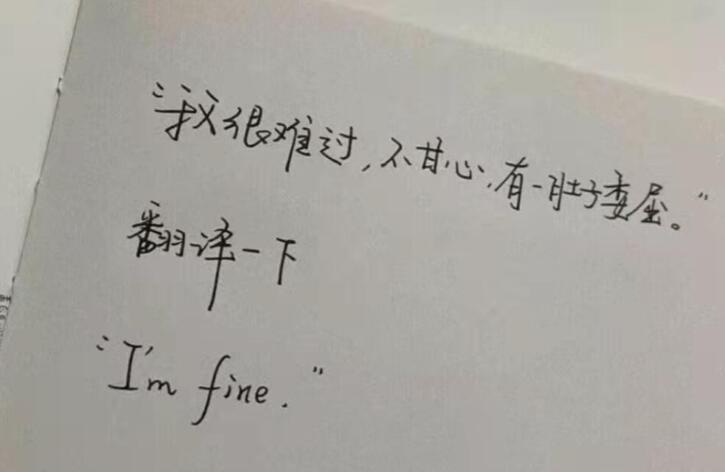 "我很难过,不甘心,有一肚子委屈。"
翻译一下
"I'm fine."